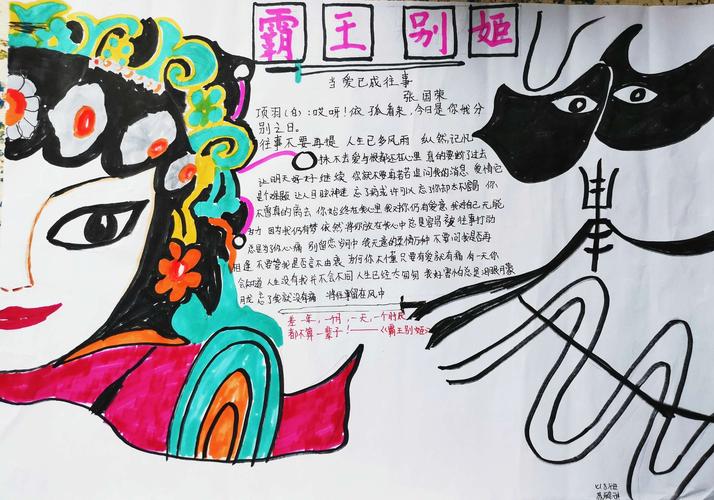 霸王别姬
当爱已成往事
张国荣
项羽(白):哎呀!依孤看来,今日是你我分
别之日。
往事不要再提 人生已多风雨 纵然记忆
抹不去爱与恨都还在心里 真的要断了过去
让明天好好继续 你就不要再苦苦追问我的消息 爱情它
是个难题 让人目眩神迷 忘了痛或许可以 忘了你却太不容易 你
不曾真的离去 你始终在我心里 我对你仍有爱意 我对自己无能
为力 因为我仍有梦 依然将你放在我心中 总是容易被往事打动
总是为了你心痛 别留恋岁月中 我无意的柔情万种 不要问我是否再
相逢 不要管我是否言不由衷 为何你不懂 只要有爱就有痛 有一天你
会知道 人生没有我并不会不同 人生已经太匆匆 我好害怕总是泪眼朦
胧 忘了我就没有痛 将往事留在风中
差一年,一个月,一天,一个时辰
都不算一辈子!——《霸王别姬》